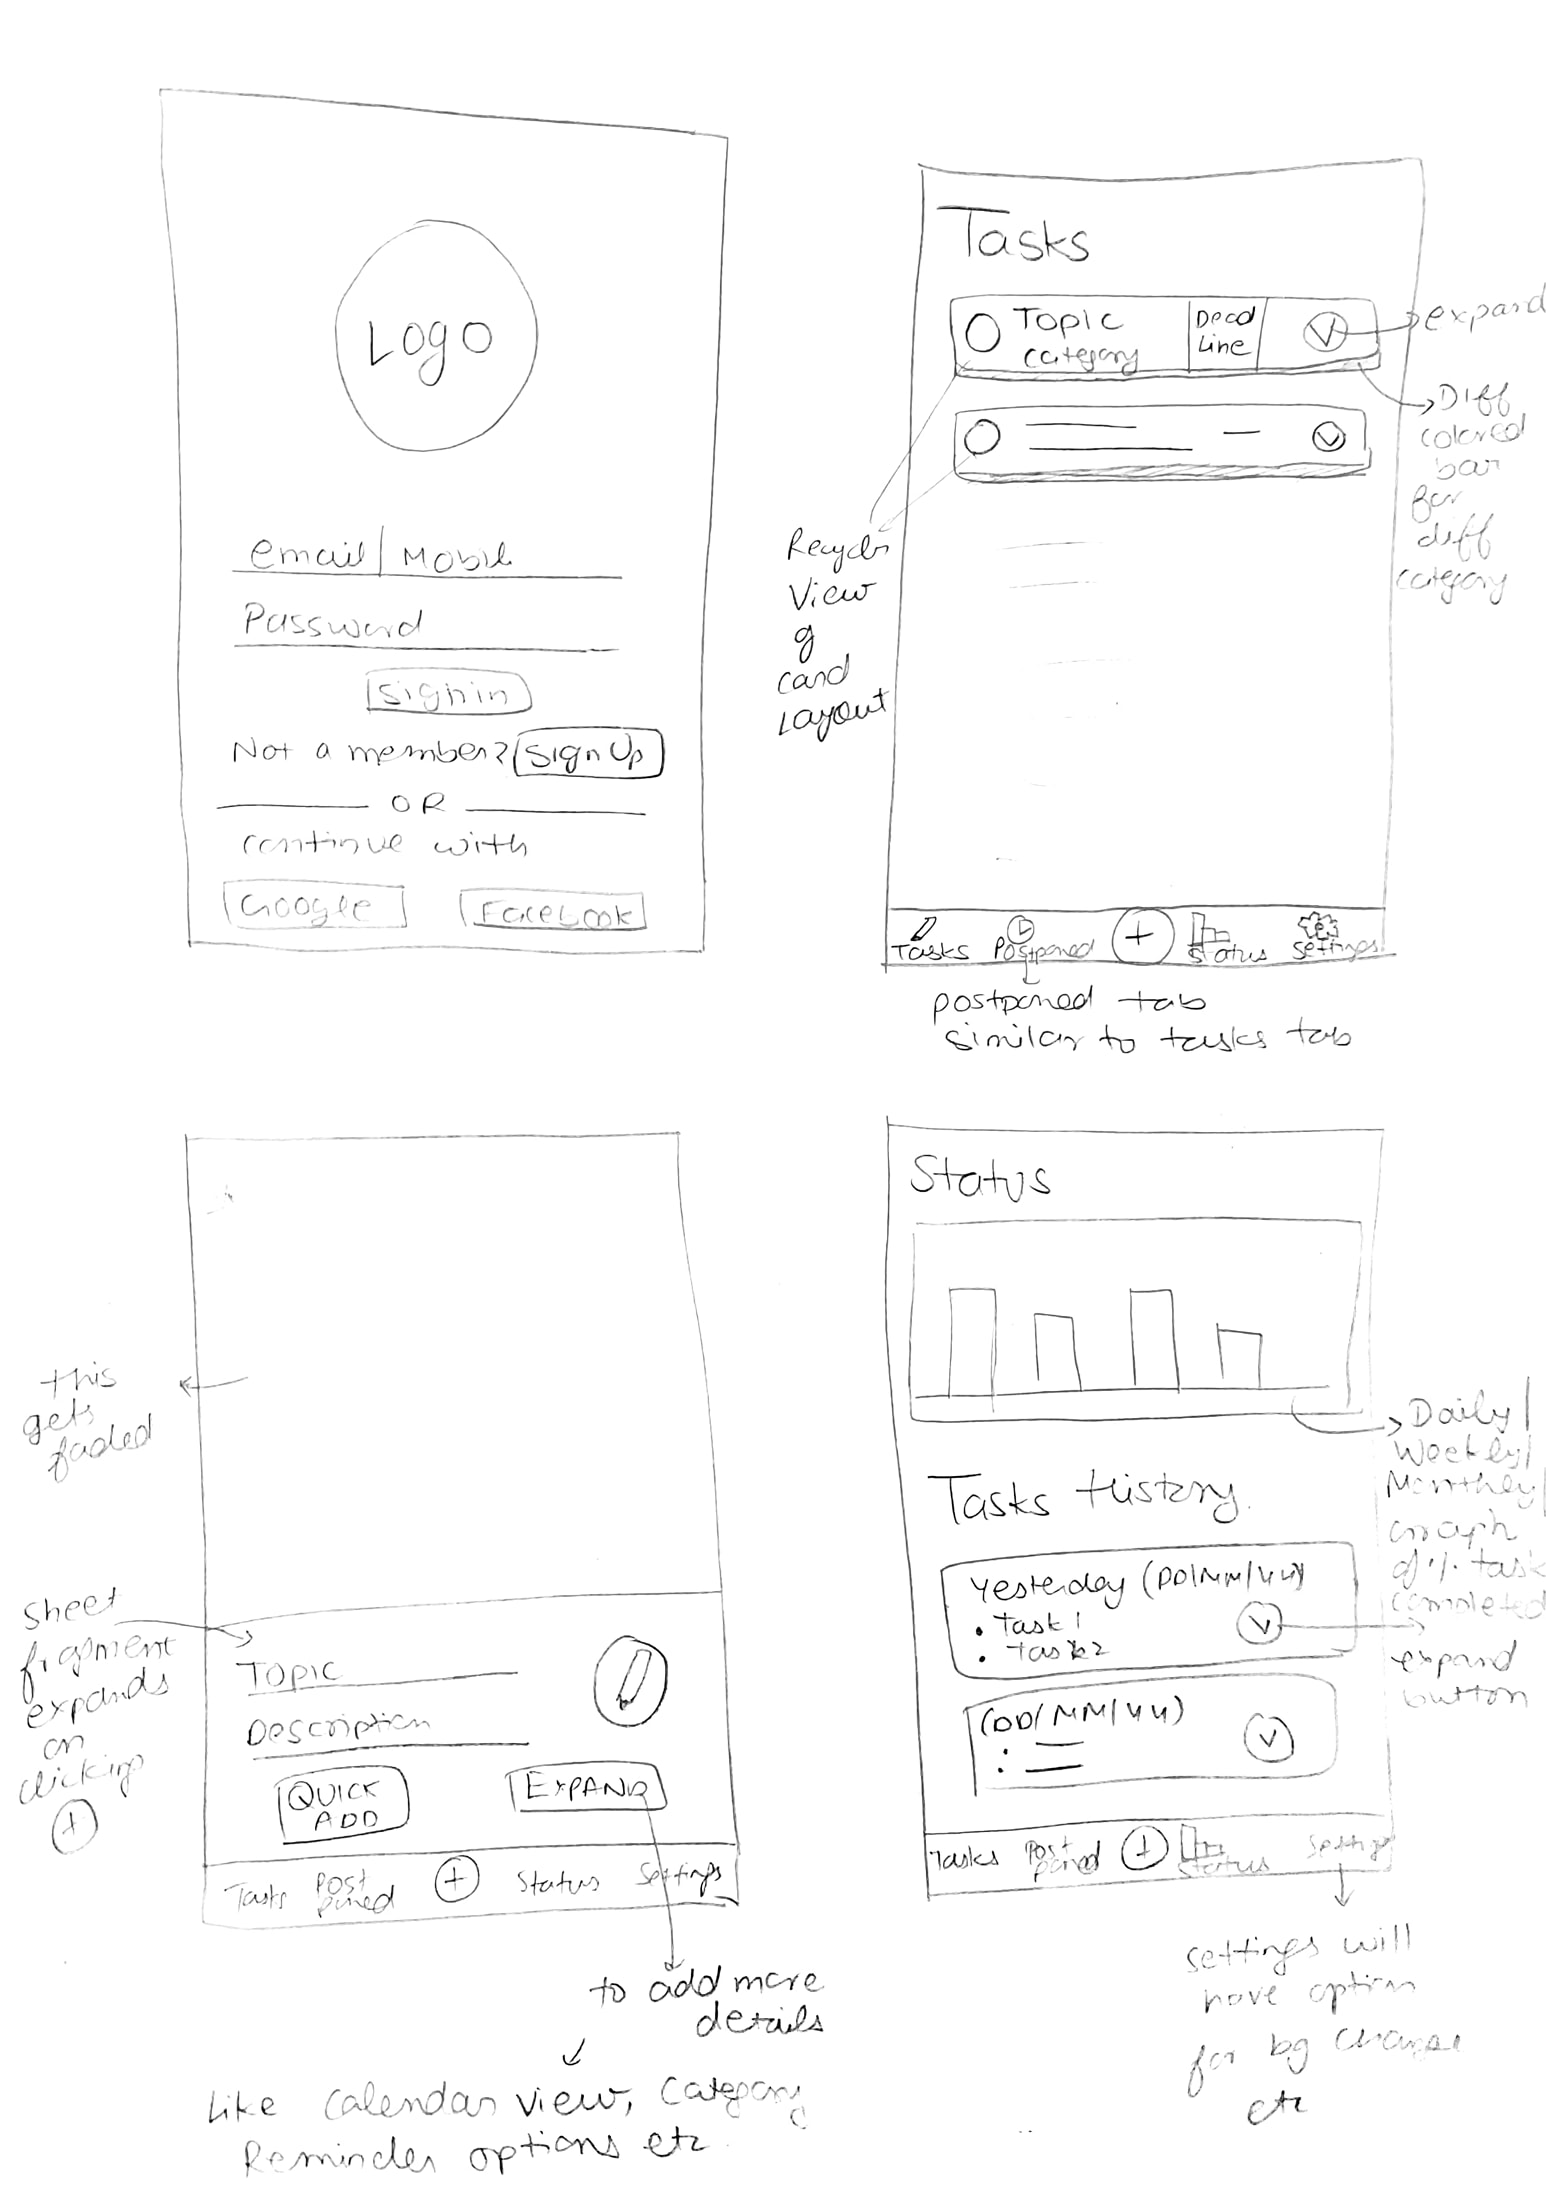 Logo
email | Mobile
Password
Sign in
Not a member? Sign Up
OR
continue with
Google
Facebook
Tasks
Topic
category
Dead
Line
expand
Diff
colored
bar
for
diff
category
Recycler
View
of
card
Layout
Tasks
Postponed
+
Status
Settings
postponed tab
similar to tasks tab
this
gets
faded
Sheet
fragment
expands
on
clicking
+
Topic
Description
QUICK
ADD
EXPAND
Tasks
Post
poned
+
Status
Settings
to add more
details
Like Calendar view, Category
Reminder options etc
Status
Daily |
Weekly |
Monthly |
Graph
of % task
completed
Tasks History
Yesterday (DD/MM/YY)
• Task 1
• Task 2
expand
button
(DD/MM/YY)
Tasks
Post
poned
+
Status
Settings
settings will
have option
for bg change
etc